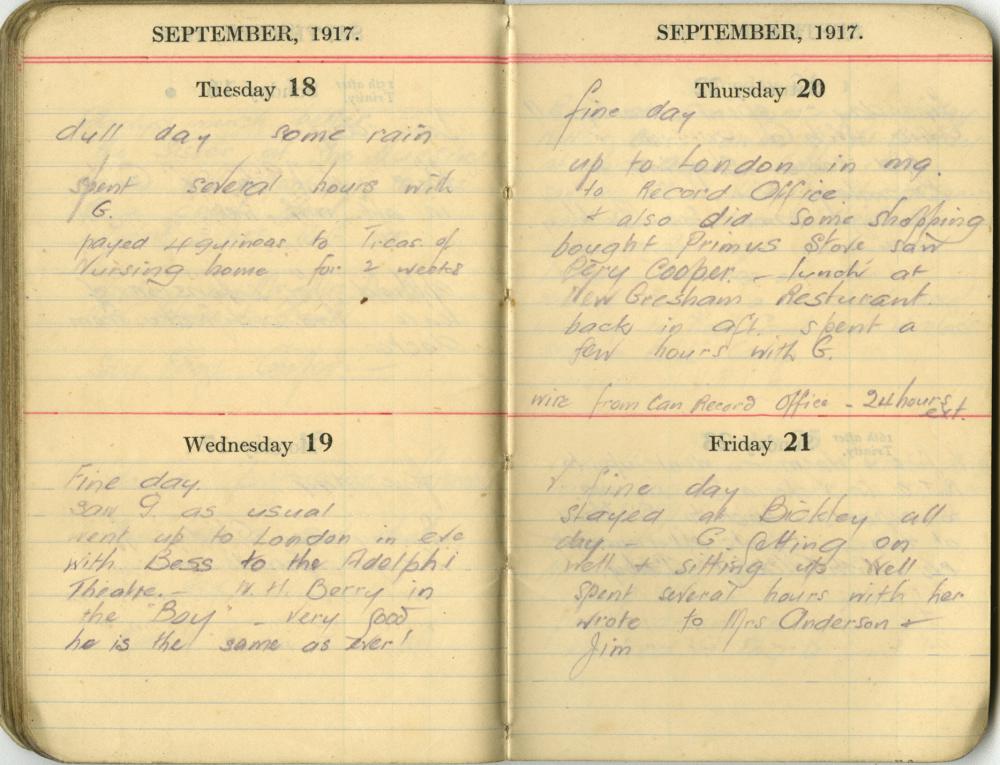 SEPTEMBER, 1917.
Tuesday 18
dull day some rain
spent several hours with
G.
payed 4 guineas to Treas. of
Nursing home for 2 weeks
Wednesday 19
Fine day.
saw G as usual
went up to London in eve
with Bess to the Adelphi
Theatre. - W. H. Berry in
the "Boy" - very good
he is the same as ever!
SEPTEMBER, 1917.
Thursday 20
fine day
up to London in mg.
to Record Office.
+ also did some shopping
bought Primus Stove saw
Cooper. - lunch at
New Gresham Resturant.
back in aft. spent a
few hours with G.
wire from Can Record Office - 24 hours
ext.
Friday 21
fine day
stayed at Bickley all
day - G getting on
well + sitting up well
spent several hours with her
wrote to Mrs Anderson +
Jim